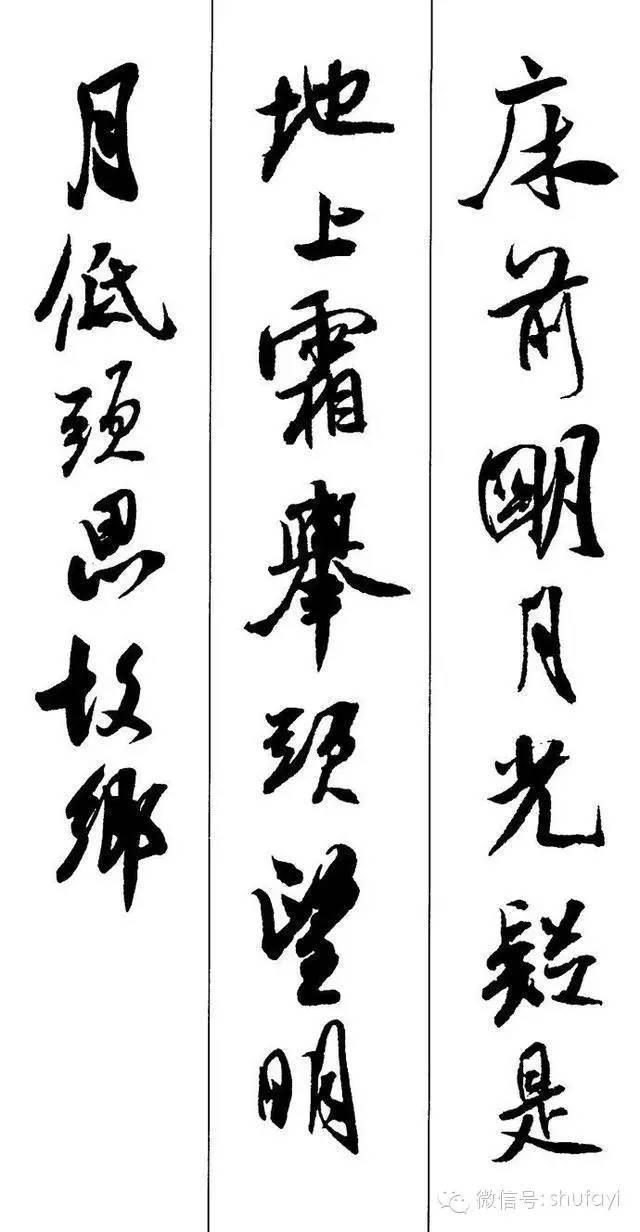 床前明月光疑是
地上霜舉頭望明
月低頭思故鄉
微信号: shufayi